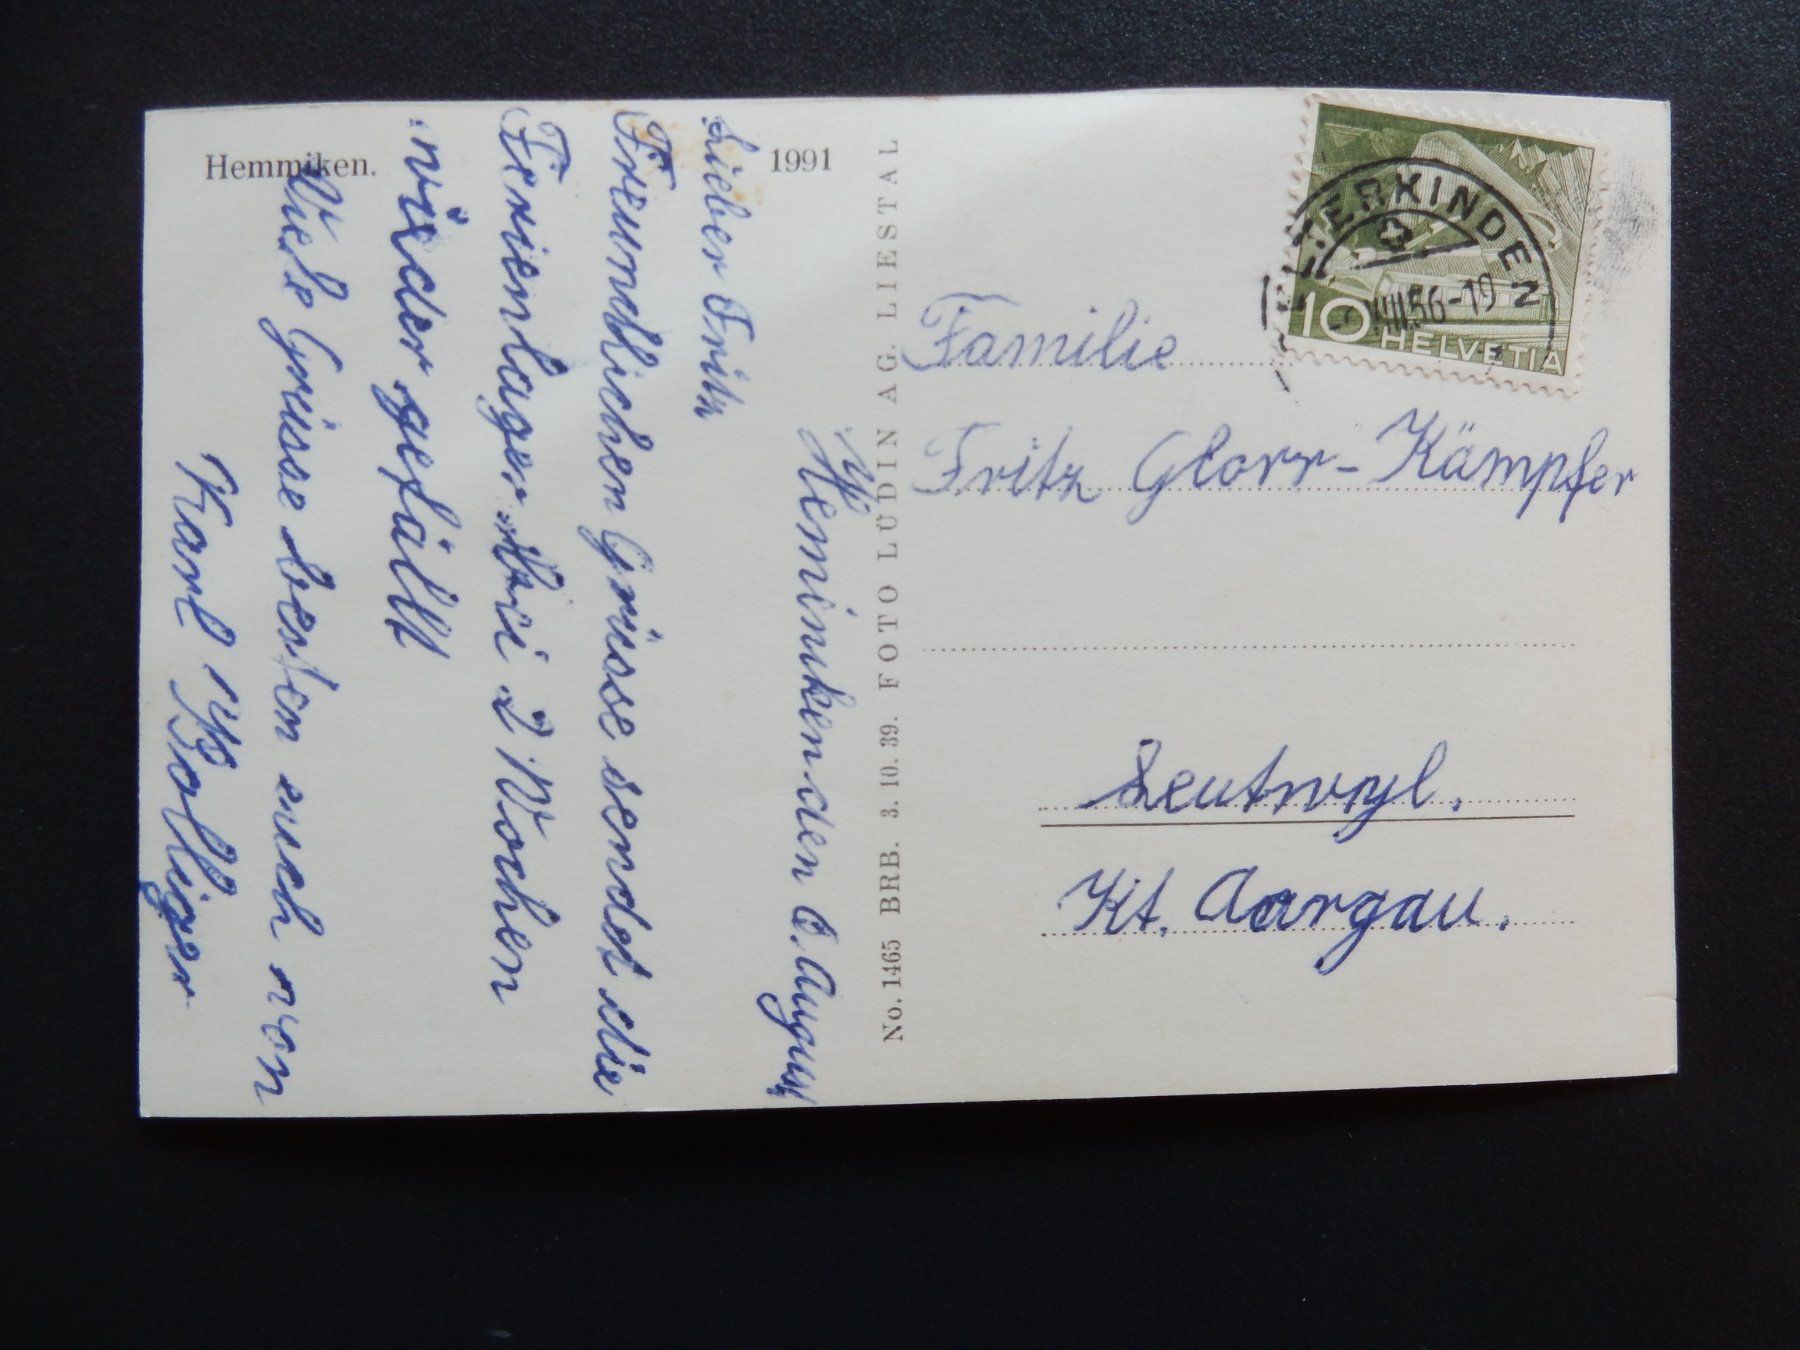 Hemmiken.
1991
Hemmiken den August
Lieber Fritz
Freundlichen Grüsse sendet die
Ferienlager 2 Wochen
wieder gefällt
Viele Grüsse besten euch von
Karl Bolliger
No. 1465 BRB. 3. 10. 39. FOTO LÜDIN AG. LIESTAL
TERKINDEN
VIII 56-19
10
HELVETIA
Familie
Fritz Glorr-Kämpfer
Leutwyl.
Kt. Aargau.